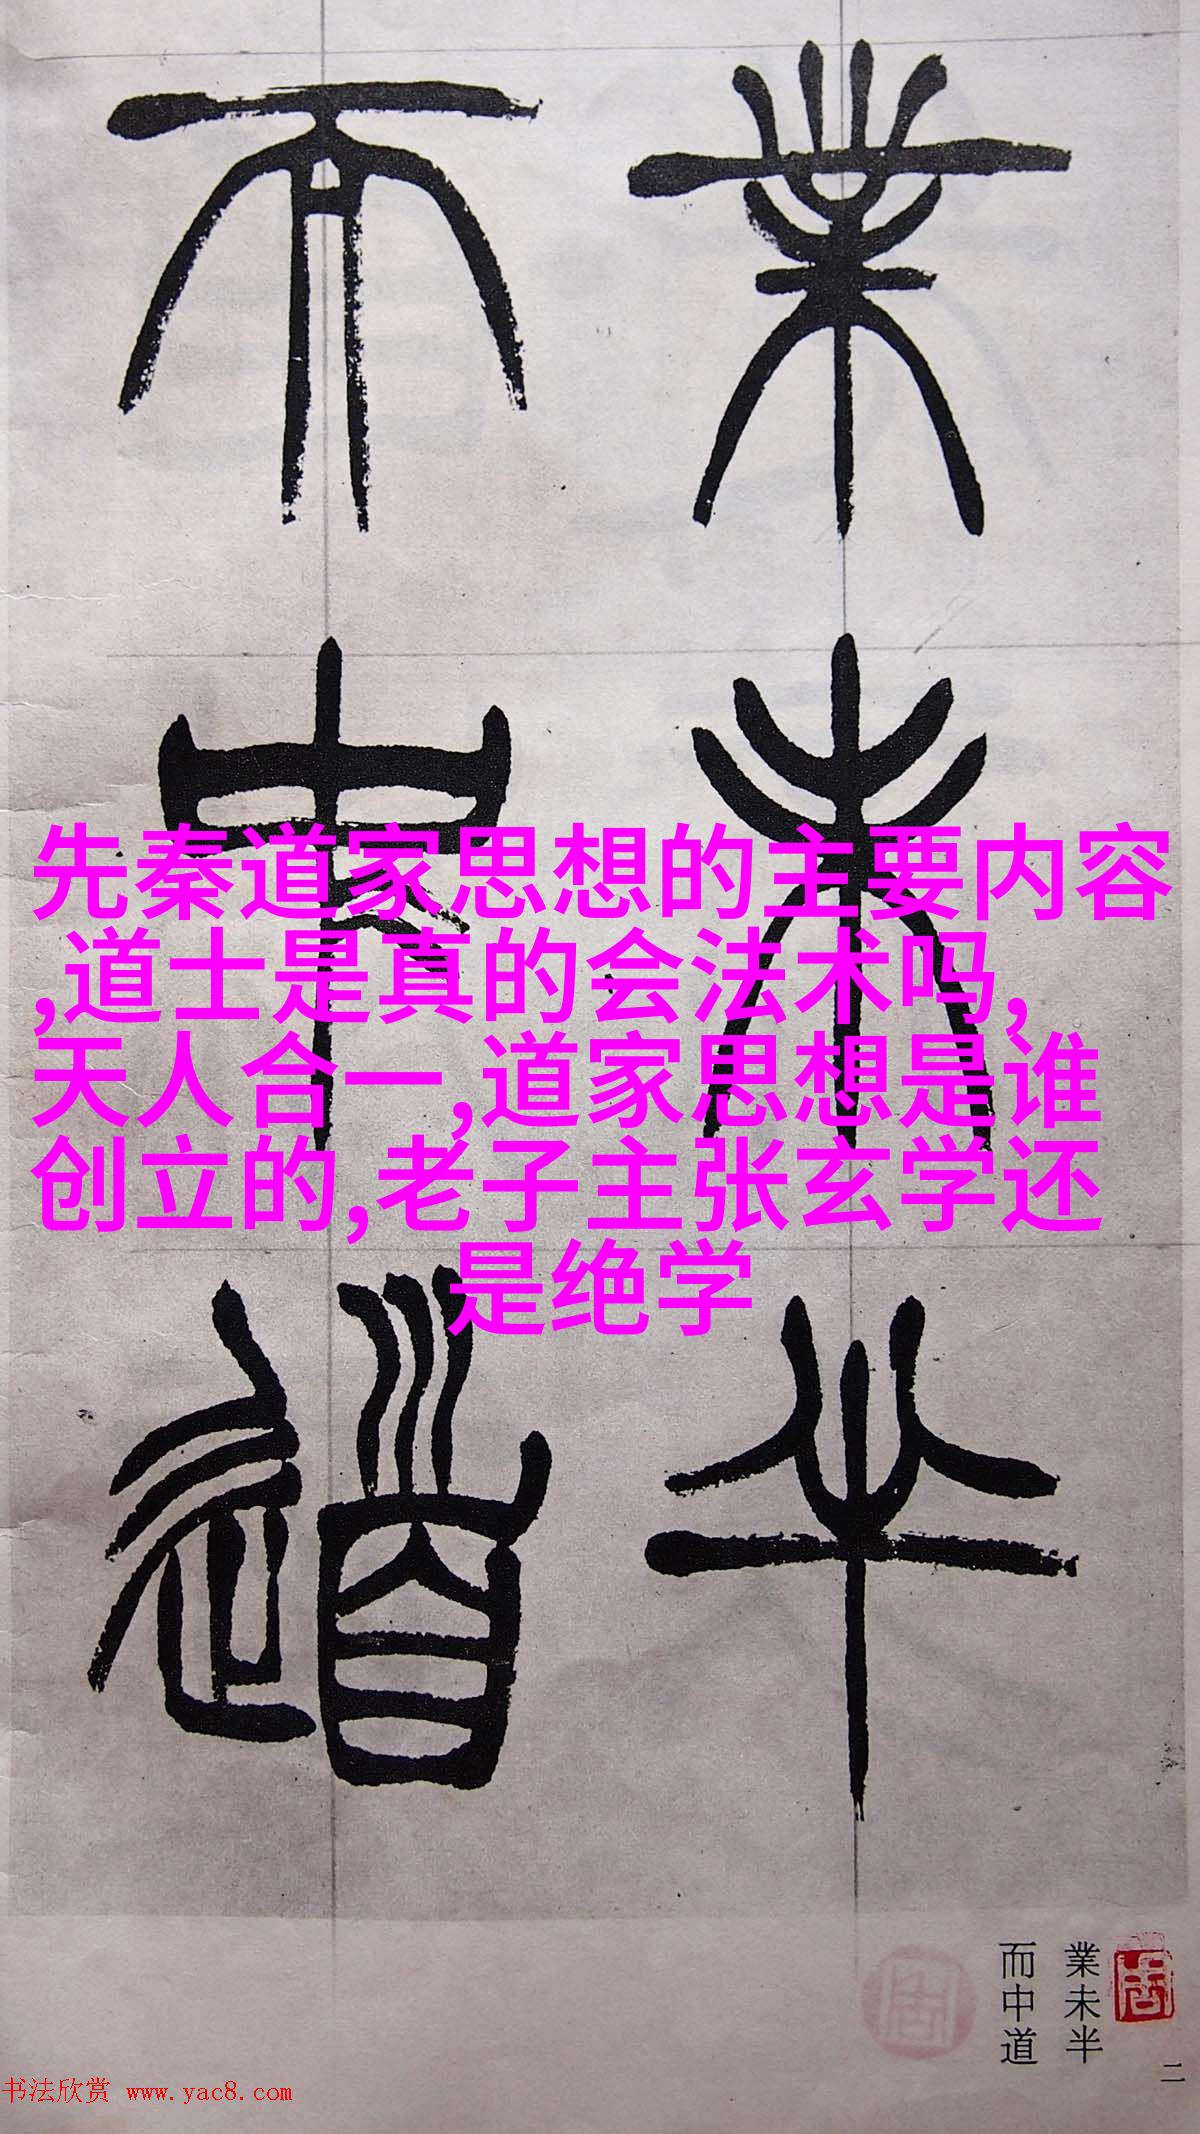 業未半
而中道
先秦道家思想的主要内容
,道士是真的会法术吗,
天人合一,道家思想是谁
创立的,老子主张玄学还
是绝学
業未半
而中道
二
书法欣赏 www.yac8.com